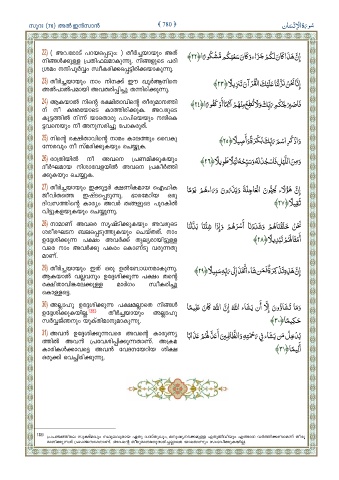 സൂറഃ (76) അൽ ഇൻസാൻ
﴾ 780 ﴿
سُورَةُ الْإِنْسَان
22) ( അവരോട് പറയപ്പെടും: ) തീർച്ചയായും അത്
നിങ്ങൾക്കുള്ള പ്രതിഫലമാകുന്നു. നിങ്ങളുടെ പരി
ശ്രമം നന്ദിപൂർവ്വം സ്വീകരിക്കപ്പെട്ടിരിക്കയാകുന്നു.
إِنَّ هَٰذَا كَانَ لَكُمْ جَزَاءً وَكَانَ سَعْيُكُم مَّشْكُورًا ﴿٢٢﴾
23) തീർച്ചയായും നാം നിനക്ക് ഈ ഖുർആനിനെ
അൽപാൽപമായി അവതരിപ്പിച്ചു തന്നിരിക്കുന്നു.
إِنَّا نَحْنُ نَزَّلْنَا عَلَيْكَ الْقُرْآنَ تَنزِيلًا ﴿٢٣﴾
24) ആകയാൽ നിന്റെ രക്ഷിതാവിന്റെ തീരുമാനത്തി
ന് നീ ക്ഷമയോടെ കാത്തിരിക്കുക. അവരുടെ
കൂട്ടത്തിൽ നിന്ന് യാതൊരു പാപിയെയും നന്ദികെ
ട്ടവനെയും നീ അനുസരിച്ചു പോകരുത്.
فَاصْبِرْ لِحُكْمِ رَبِّكَ وَلَا تُطِعْ مِنْهُمْ آثِمًا أَوْ كَفُورًا ﴿٢٤﴾
25) നിന്റെ രക്ഷിതാവിന്റെ നാമം കാലത്തും വൈകു
ന്നേരവും നീ സ്മരിക്കുകയും ചെയ്യുക.
وَاذْكُرِ اسْمَ رَبِّكَ بُكْرَةً وَأَصِيلًا ﴿٢٥﴾
26) രാത്രിയിൽ നീ അവനെ പ്രണമിക്കുകയും
ദീർഘമായ നിശാവേളയിൽ അവനെ പ്രകീർത്തി
ക്കുകയും ചെയ്യുക.
وَمِنَ اللَّيْلِ فَاسْجُدْ لَهُ وَسَبِّحْهُ لَيْلًا طَوِيلًا ﴿٢٦﴾
27) തീർച്ചയായും ഇക്കൂട്ടർ ക്ഷണികമായ ഐഹിക
ജീവിതത്തെ ഇഷ്ടപ്പെടുന്നു. ഭാരമേറിയ ഒരു
ദിവസത്തിന്റെ കാര്യം അവർ തങ്ങളുടെ പുറകിൽ
വിട്ടുകളയുകയും ചെയ്യുന്നു.
إِنَّ هَٰؤُلَاءِ يُحِبُّونَ الْعَاجِلَةَ وَيَذَرُونَ وَرَاءَهُمْ يَوْمًا
ثَقِيلًا ﴿٢٧﴾
28) നാമാണ് അവരെ സൃഷ്ടിക്കുകയും അവരുടെ
ശരീരഘടന ബലപ്പെടുത്തുകയും ചെയ്തത്. നാം
ഉദ്ദേശിക്കുന്ന പക്ഷം അവർക്ക് തുല്യരായിട്ടുള്ള
വരെ നാം അവർക്കു പകരം കൊണ്ടു വരുന്നതു
മാണ്.
نَّحْنُ خَلَقْنَاهُمْ وَشَدَدْنَا أَسْرَهُمْ وَإِذَا شِئْنَا بَدَّلْنَا
أَمْثَالَهُمْ تَبْدِيلًا ﴿٢٨﴾
29) തീർച്ചയായും ഇത് ഒരു ഉൽബോധനമാകുന്നു.
ആകയാൽ വല്ലവനും ഉദ്ദേശിക്കുന്ന പക്ഷം തന്റെ
രക്ഷിതാവിങ്കലേക്കുള്ള മാർഗം സ്വീകരിച്ചു
കൊള്ളട്ടെ.
إِنَّ هَٰذِهِ تَذْكِرَةٌ فَمَن شَاءَ اتَّخَذَ إِلَىٰ رَبِّهِ سَبِيلًا ﴿٢٩﴾
30) അല്ലാഹു ഉദ്ദേശിക്കുന്ന പക്ഷമല്ലാതെ നിങ്ങൾ
ഉദ്ദേശിക്കുകയില്ല. തീർച്ചയായും അല്ലാഹു
സർവ്വജ്ഞനും യുക്തിമാനുമാകുന്നു.
وَمَا تَشَاءُونَ إِلَّا أَن يَشَاءَ اللَّهُ إِنَّ اللَّهَ كَانَ عَلِيمًا
حَكِيمًا ﴿٣٠﴾
31) അവൻ ഉദ്ദേശിക്കുന്നവരെ അവന്റെ കാരുണ്യ
ത്തിൽ അവൻ പ്രവേശിപ്പിക്കുന്നതാണ്. അക്രമ
കാരികൾക്കാവട്ടെ അവൻ വേദനയേറിയ ശിക്ഷ
ഒരുക്കി വെച്ചിരിക്കുന്നു.
يُدْخِلُ مَن يَشَاءُ فِي رَحْمَتِهِ وَالظَّالِمِينَ أَعَدَّ لَهُمْ عَذَابًا
أَلِيمًا ﴿٣١﴾